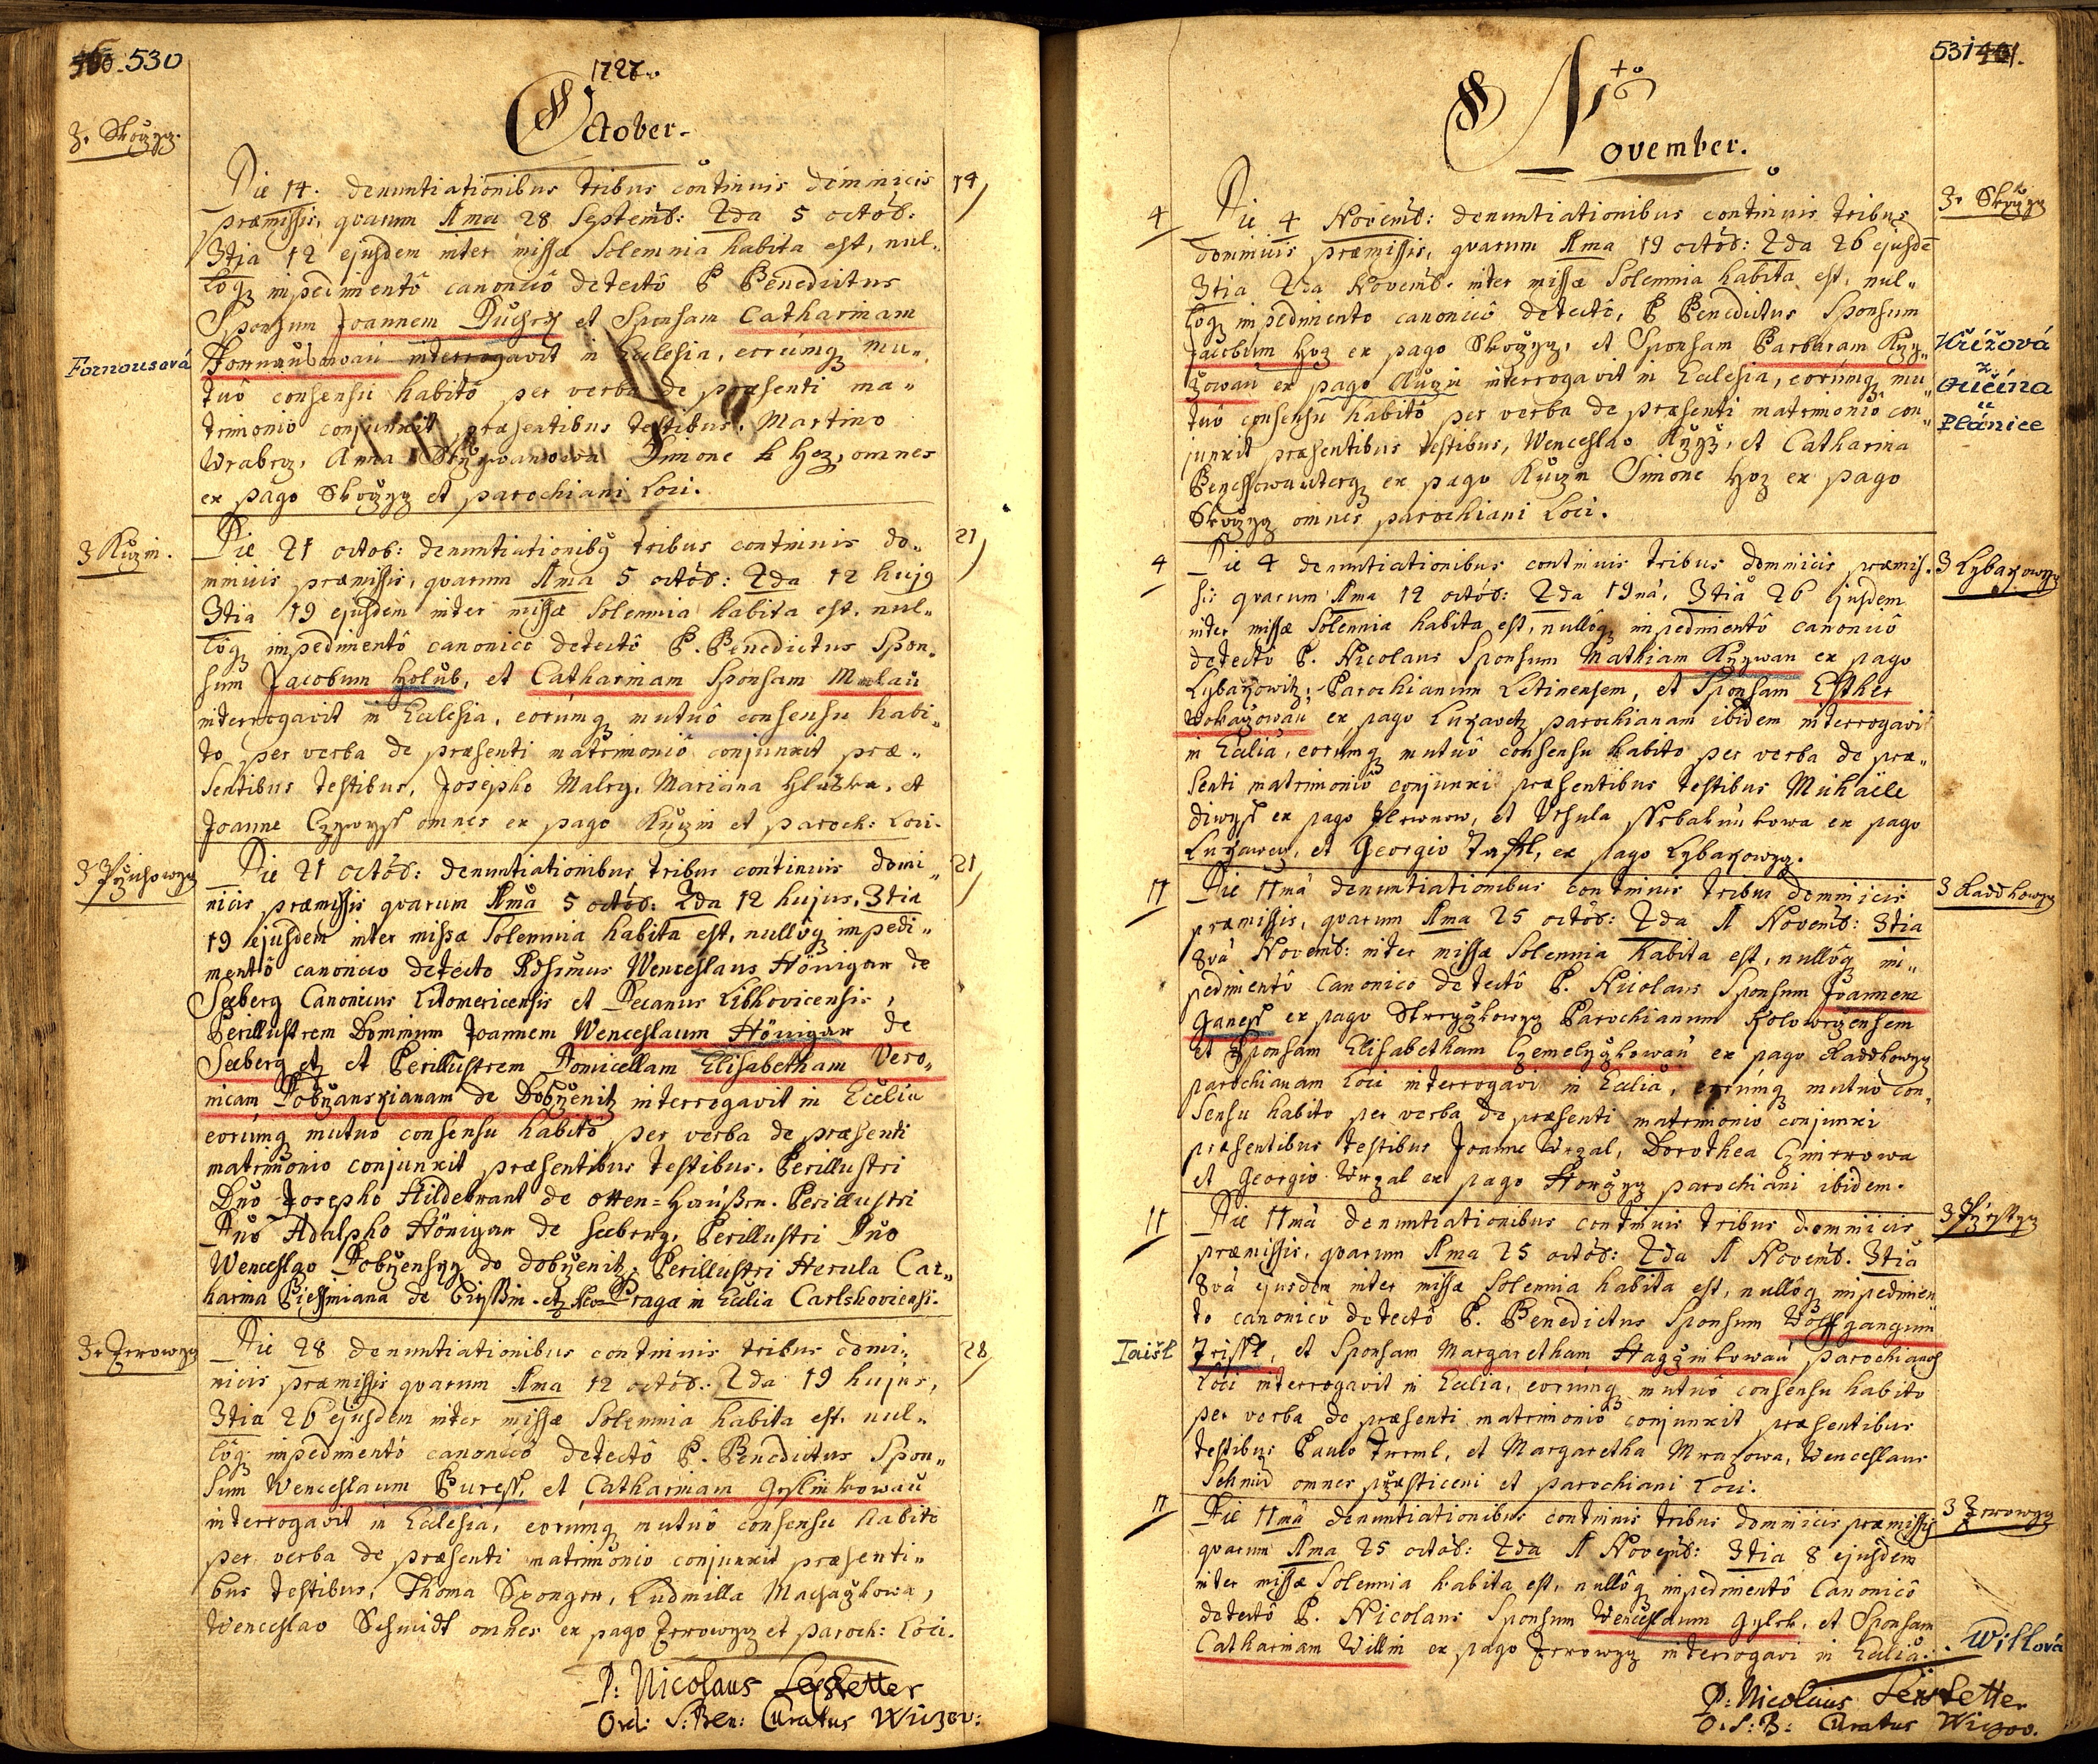 530
1727.
October.
Z. Skoczyz.
Die 14. denuntiationibus tribus continuis dominicis
14
præmissis, quarum 1ma 28 Septemb: 2da 5 octob:
3tia 12 ejusdem inter missæ Solemnia habita est, nul„
loq impedimentô canonicô detectô P Benedictus
Sponsum Joannem et Sponsam Catharinam
Fornousová
interrogavit in Ecclesia, eorúmq mu„
tuô consensu habitô per verba de præsenti ma„
trimonio conjunxit præsentibus testibus, Martino
Wrabcz, Anna Simone Hoz, omnes
ex pago Skoczyz et parochiani Loci.
3 Kuzin.
Die 21 octob: denuntiationibq tribus continuis do„
21
minicis præmissis, quarum 1ma 5 octob: 2da 12 hujq
3tia 19 ejusdem inter missæ Solemnia habita est, nul„
lôq impedimentô canonico detectô P. Benedictus Spon„
sum Jacobum Holub, et Catharinam Sponsam Malau
interrogavit in Ecclesia, eorúmq mutuô consensu habi„
to per verba de præsenti matrimoniô conjunxit præ„
sentibus testibus, Josepho Malry, Mariana Hluska, et
Joanne omnes ex pago Kuzin et paroch: Loci.
Die 21 octob: denuntiationibus tribus continuis domi„
21
nicis præmissis quarum 1ma 5 octob: 2da 12 hujus, 3tia
19 ejusdem inter missæ Solemnia habita est, nullôq impedi„
mentô canonico detecto Rdssimus Wenceslaus Hönigar de
Seeberg Canonicus Litomericensis et Decanus Libkovicensis,
Perillustrem Dominum Joannem Wenceslaum Hönigar de
Seeberg etz et Perillustrem Domicellam Elisabetham Vero„
nicam Dobrzanskianam de Dobrzenitz interrogavit in Ecclia
eorúmq mutuo consensu habitô per verba de præsenti
matrimonio conjunxit præsentibus testibus. Perillustri
Dno Josepho Hildebrant de Otten=Haußen. Perillustri
Dno Adalpho Hönigar de Seeberg, Perillustri Dno
Wenceslao Dobrzensky de dobrzenitz, Perillustri Herula Cat„
harina de etz Pragæ in Ecclia Carlshoviensi.
Die 28 denuntiationibus continuis tribus domi„
28
nicis præmissis quarum 1ma 12 octob: 2da 19 hujus,
3tia 26 ejusdem inter missæ Solemnia habita est, nul„
lôq impedimentô canonicô detectô P. Benedictus Spon„
sum Wenceslaum Buress, et Catharinam
interrogavit in Ecclesia, eorumq mutuô consensu habito
per verba de præsenti matrimonio conjunxit præsenti„
bus testibus, Thoma Spongar, Ludmilla
Wenceslao Schmidt omnes ex pago et paroch: Loci.
P: Nicolaus
Ord: S: Ben: Curatus
531
November.
Z. Skoczyz
4
Die 4 Novemb: denuntiationibus continuis tribus
dominicis præmissis, quarum 1ma 19 octob: 2da 26 ejusde
3tia 2da Novemb. inter missæ Solemnia habita est, nul„
loq impedimento canonicô detectô, P Benedictus Sponsum
Jacobum Hoz ex pago Skoczyz, et Sponsam Barbaram Krzy„
Křížová
zowau ex pago Kuzin interrogavit in Ecclesia, eorúmq mu„
z
Oučína
tuo consensu habitô per verba de præsenti matrimoniô con„
u
Plánice
junxit præsentibus testibus, Wenceslao Krzyz, et Catharina
ex pago Kuzin Simone Hoz ex pago
Skoczyz omnes parochiani Loci.
4
Die 4 denuntiationibus continuis tribus dominicis præmis„
sis quarum 1ma 12 octob: 2da 19nâ, 3tiâ 26 ejusdem
inter missæ Solennia habita est, nullôq impedimentô canonicô
detectô P. Nicolaus Sponsum Mathiam ex pago
Parochianum Letinensem, et Sponsam Esther
ex pago parochianam ibidem interrogavi
in Ecclia, eorúmq mutuô consensu habito per verba de præ„
senti matrimoniô conjunxi præsentibus testibus Michaele
ex pago et Ursula ex pago
et Georgio ex pago
11
Die 11mâ denuntiationibus continuis tribus dominicis
præmissis, quarum 1ma 25 octob: 2da 1 Novemb: 3tia
8vâ Novemb: inter missæ Solennia habita est, nullôq im„
pedimentô Canonico detectô P. Nicolaus Sponsum Joannem
Ganess ex pago Parochianum
et Sponsam Elisabetham ex pago
parochianam Loci interrogavi in Ecclia, eorúmq mutuô con„
sensu habito per verba de præsenti matrimonio conjunxi
præsentibus testibus Joanne Wrzal, Dorothea
et Georgio Wrzal ex pago parochiani ibidem.
11
Die 11mâ denuntiationibus continuis tribus dominicis
præmissis, quarum 1ma 25 octob: 2da 1 Novemb. 3tia
8vâ ejusdem inter missæ Solennia habita est, nullôq impedimen„
to canonicô detectô P. Benedictus Sponsum Wolffgangum
Taišl
et Sponsam Margaretham parochianos
Loci interrogavit in Ecclia, eorumq mutuô consensu habito
per verba de præsenti matrimoniô conjunxit præsentibus
testibus Paulo et Margaretha Mrazowa, Wenceslaus
Schmid omnes et parochiani Loci.
11
Die 11mâ denuntiationibus continuis tribus dominicis præmissis
quarum 1ma 25 octob: 2da 1 Novemb: 3tia 8 ejusdem
inter missæ Solennia habita est, nullôq impedimentô Canonicô
detectô P. Nicolaus Sponsum Wenceslaum et Sponsam
Catharinam Willin ex pago interrogavi in Ecclia.
Willová
P: Nicolaus
O. S: B: Curatus